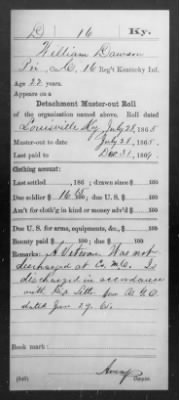 D 16 Ky.
William Dawson
Pvt., Co. C, 16 Reg't Kentucky Inf.
Age 22 years.
Appears on a
Detachment Muster-out Roll
of the organization named above. Roll dated
Louisville Ky July 28, 1865
Muster-out to date July 28, 1865.
Last paid to Dec. 31, 186
Clothing account:
Last settled , 186 ; drawn since $ 100
Due soldier $ 100; due U. S. $ 100
Am't for cloth'g in kind or money adv'd $ 100
Due U. S. for arms, equipments, &c., $ 100
Bounty paid $ 100; due $ 100
Remarks: A Veteran Was not
discharged at Co. M.O. Is
discharged in accordance
with
dated Jan. 29,
Book mark:
Copyist.